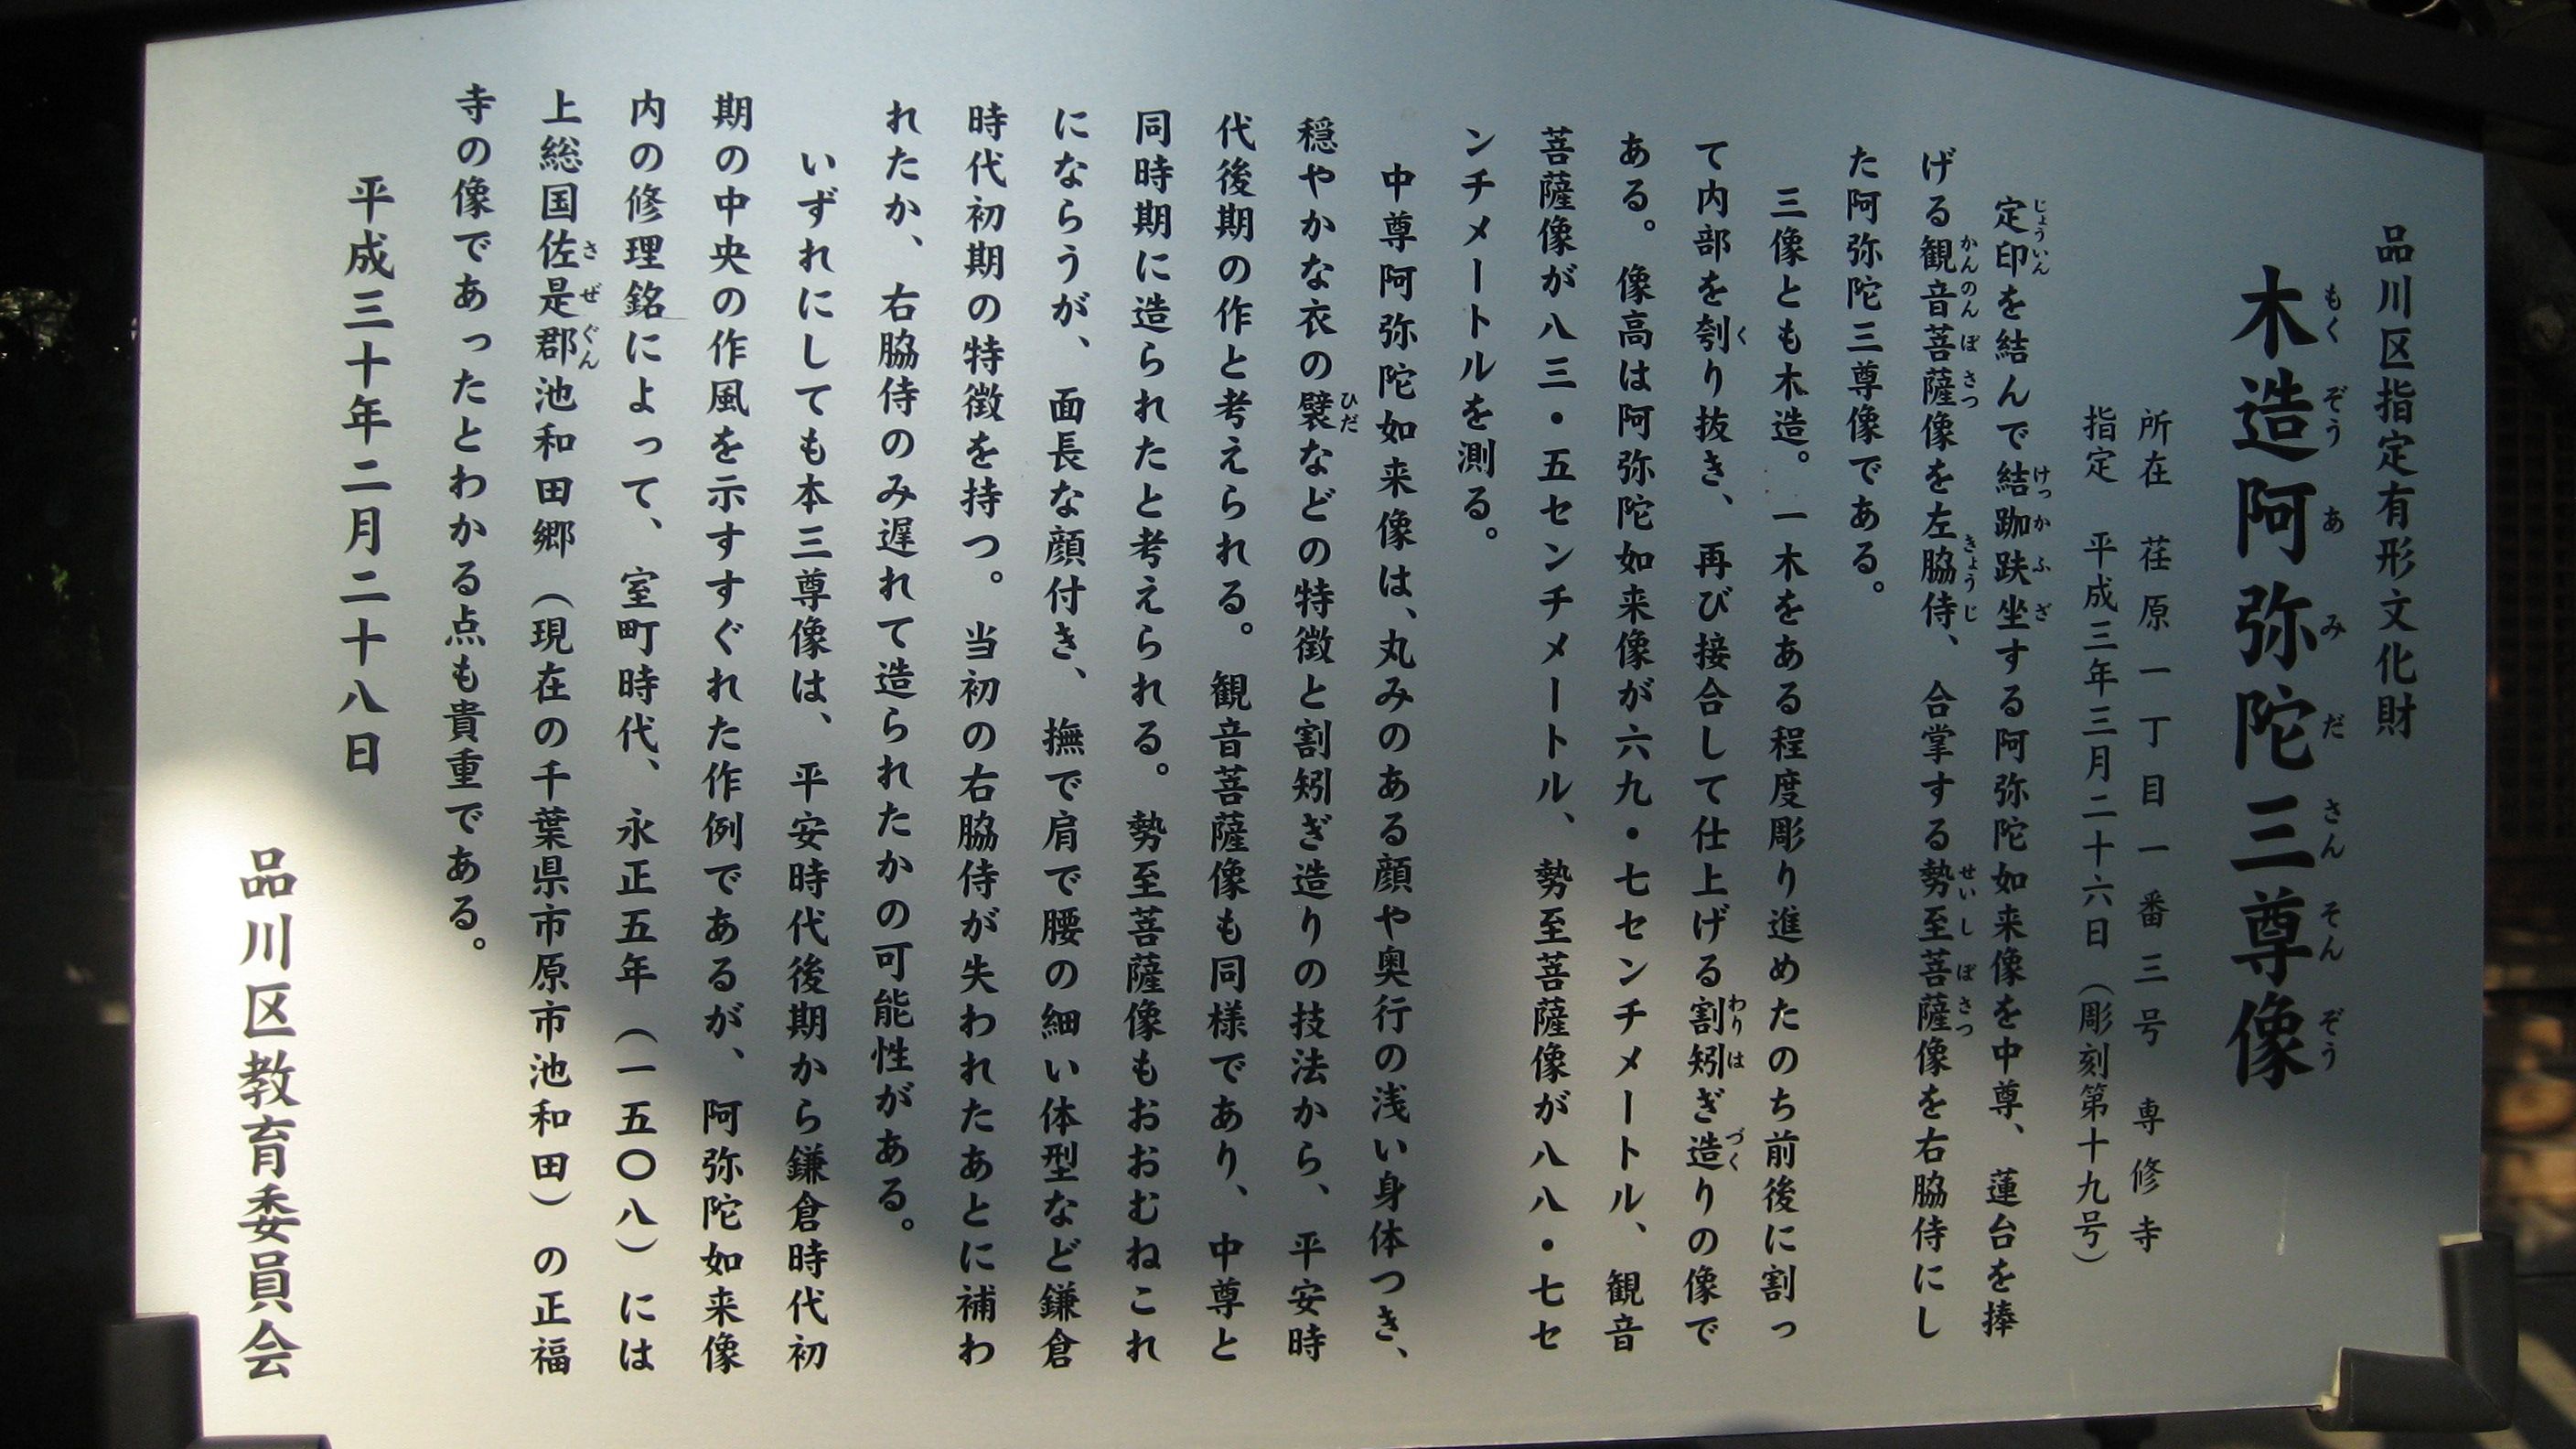 品川区指定有形文化財
木造阿弥陀三尊像
もくぞうあみださんそんぞう
所在　荏原一丁目一番三号　専修寺
指定　平成三年三月二十六日（彫刻第十九号）
定印を結んで結跏趺坐する阿弥陀如来像を中尊、蓮台を捧
じょういん　けっかふざ
げる観音菩薩像を左脇侍、合掌する勢至菩薩像を右脇侍にし
かんのんぼさつ　きょうじ　せいしぼさつ
た阿弥陀三尊像である。
三像とも木造。一木をある程度彫り進めたのち前後に割っ
て内部を刳り抜き、再び接合して仕上げる割矧ぎ造りの像で
く　わりは　づく
ある。像高は阿弥陀如来像が六九・七センチメートル、観音
菩薩像が八三・五センチメートル、勢至菩薩像が八八・七セ
ンチメートルを測る。
中尊阿弥陀如来像は、丸みのある顔や奥行の浅い身体つき、
穏やかな衣の襞などの特徴と割矧ぎ造りの技法から、平安時
ひだ
代後期の作と考えられる。観音菩薩像も同様であり、中尊と
同時期に造られたと考えられる。勢至菩薩像もおおむねこれ
にならうが、面長な顔付き、撫で肩で腰の細い体型など鎌倉
時代初期の特徴を持つ。当初の右脇侍が失われたあとに補わ
れたか、右脇侍のみ遅れて造られたかの可能性がある。
いずれにしても本三尊像は、平安時代後期から鎌倉時代初
期の中央の作風を示すすぐれた作例であるが、阿弥陀如来像
内の修理銘によって、室町時代、永正五年（一五〇八）には
上総国佐是郡池和田郷（現在の千葉県市原市池和田）の正福
さぜぐん
寺の像であったとわかる点も貴重である。
平成三十年二月二十八日
品川区教育委員会